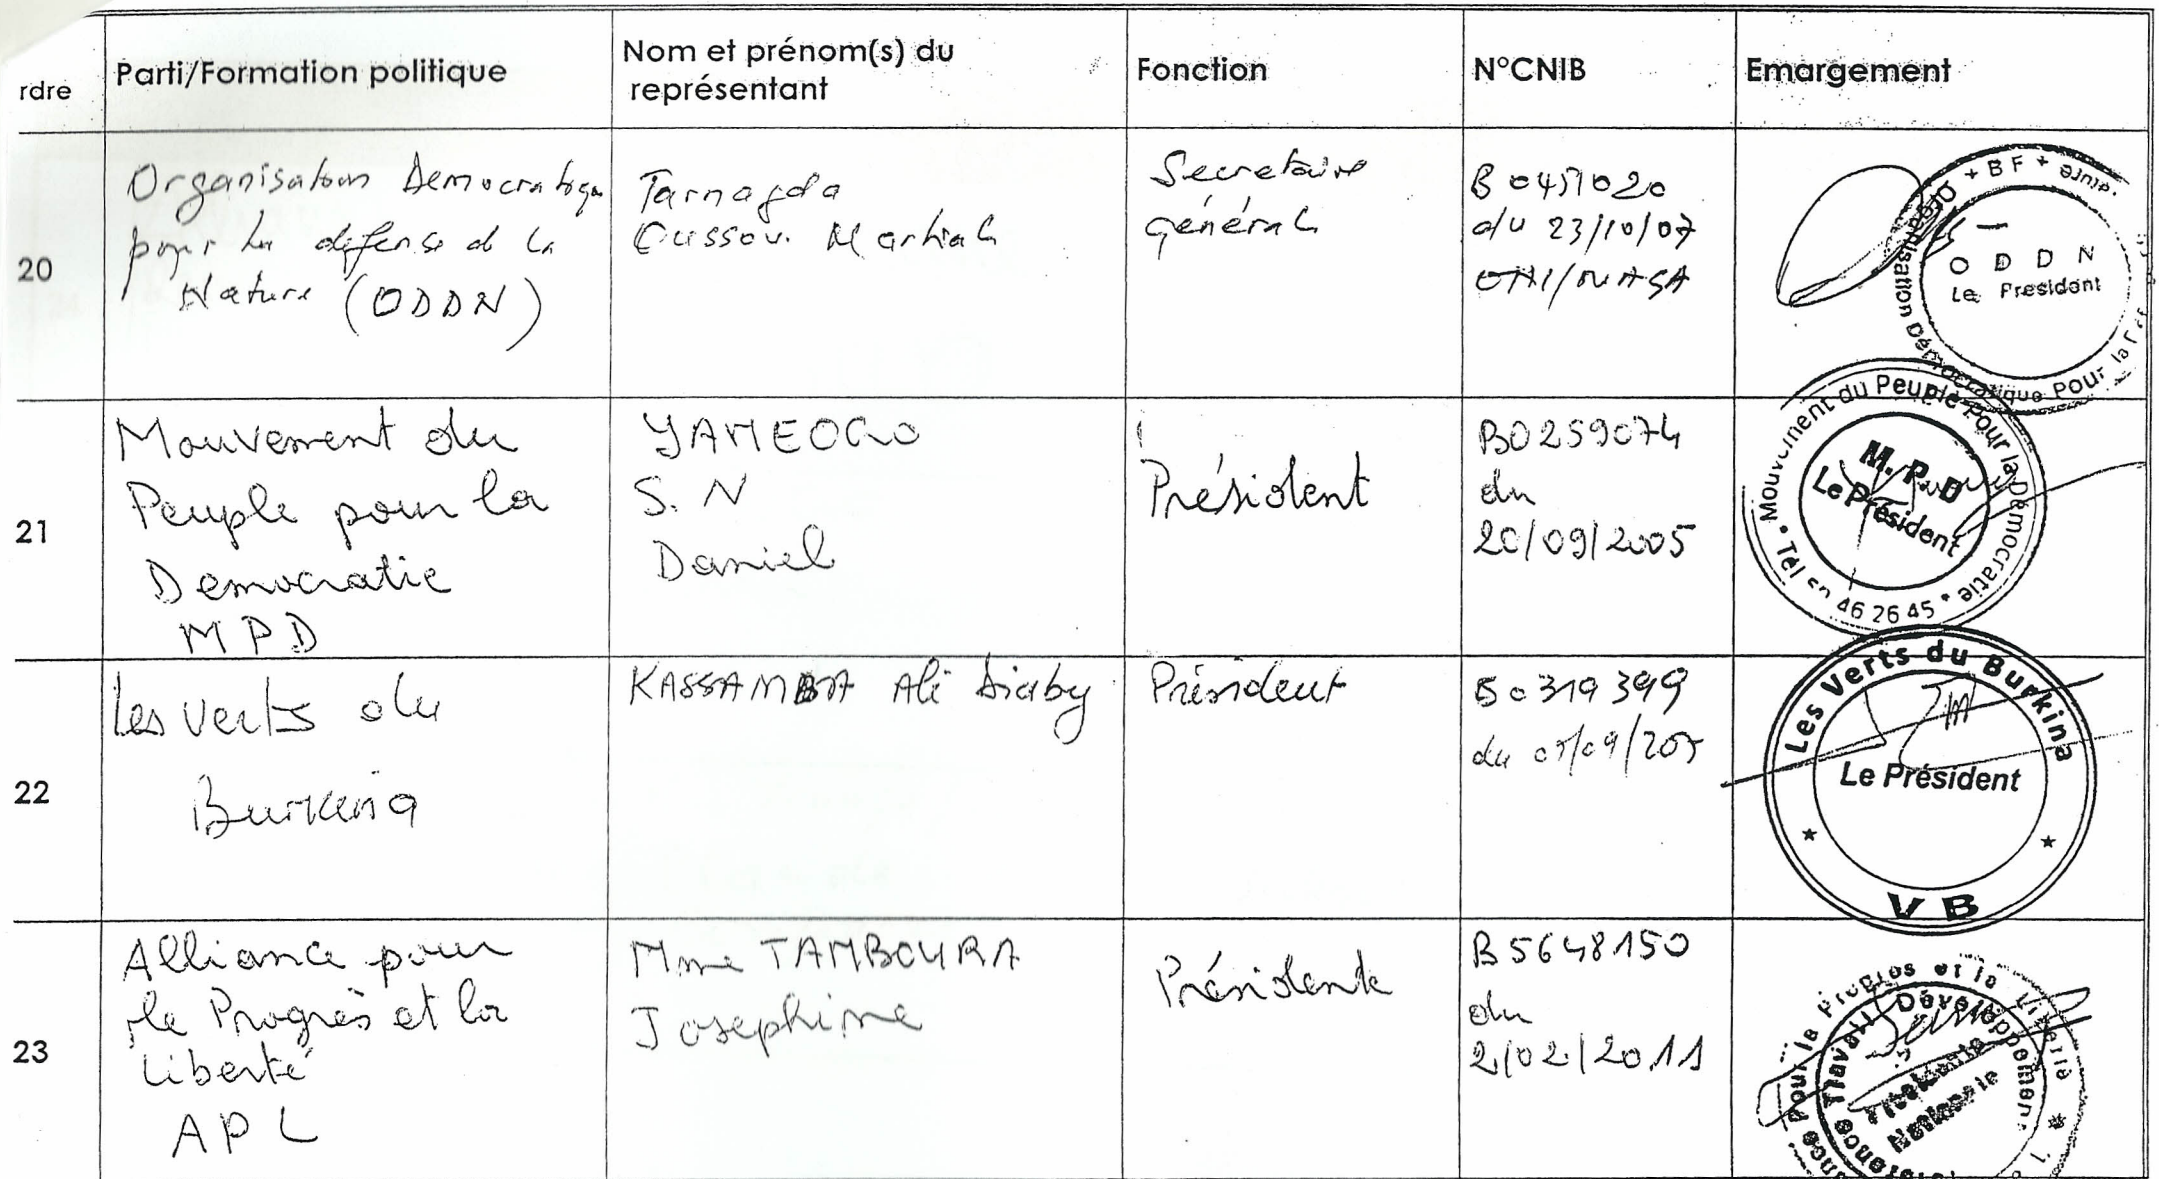 rdre
Parti/Formation politique
Nom et prénom(s) du
représentant
Fonction
N°CNIB
Emargement
20
Organisation Democratique
pour la defense de la
Nature (ODDN)
Tarnagda
Oussou. Martial
Secretaire
général
B0451020
du 23/10/07
ONI/
+ BF +
O D D N
Le President
Organisation Démocratique Pour la
21
Mouvement du
Peuple pour la
Democratie
MPD
YAMEOGO
S. N
Daniel
Président
B0259074
du
20/09/2005
Mouvement du Peuple Pour la Démocratie
M.P.D
Le Président
Tél 46 26 45
22
Les Verts du
Burkina
KASSAMBA Ali Diaby
Président
B0319399
du
Les Verts du Burkina
Le Président
V B
23
Alliance pour
le Progrès et la
Liberté
APL
Mme TAMBOURA
Josephine
Présidente
B5648150
du
2/02/2011
Pour le Progrès et la Liberté
Travail Développement
Présidente
Nationale